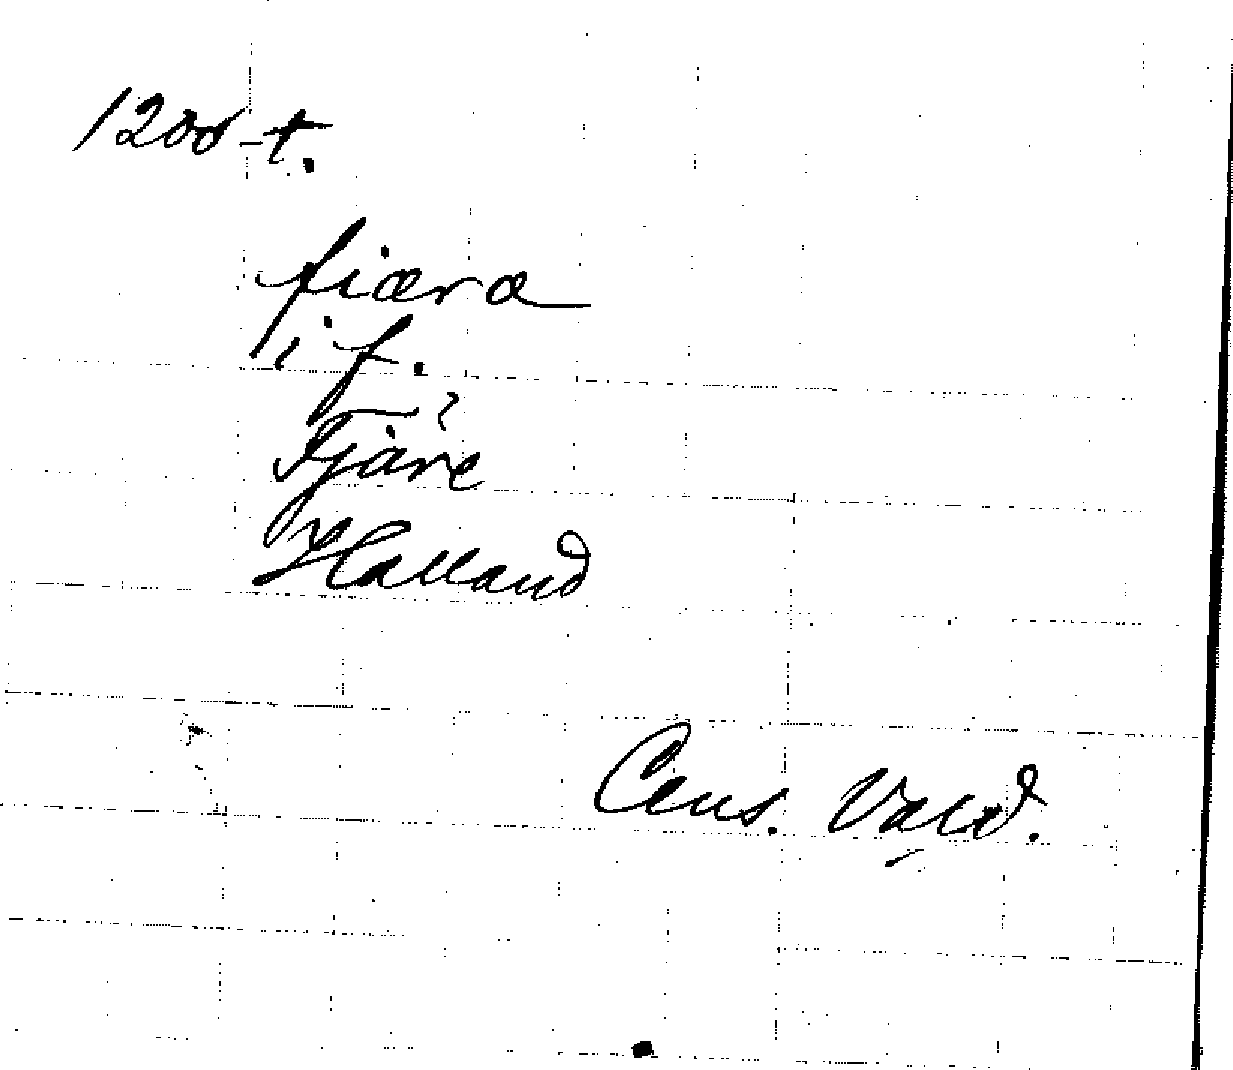 1200-t.
fiæræ
i f.
?
Fjäre
Halland
Cens. Vald.